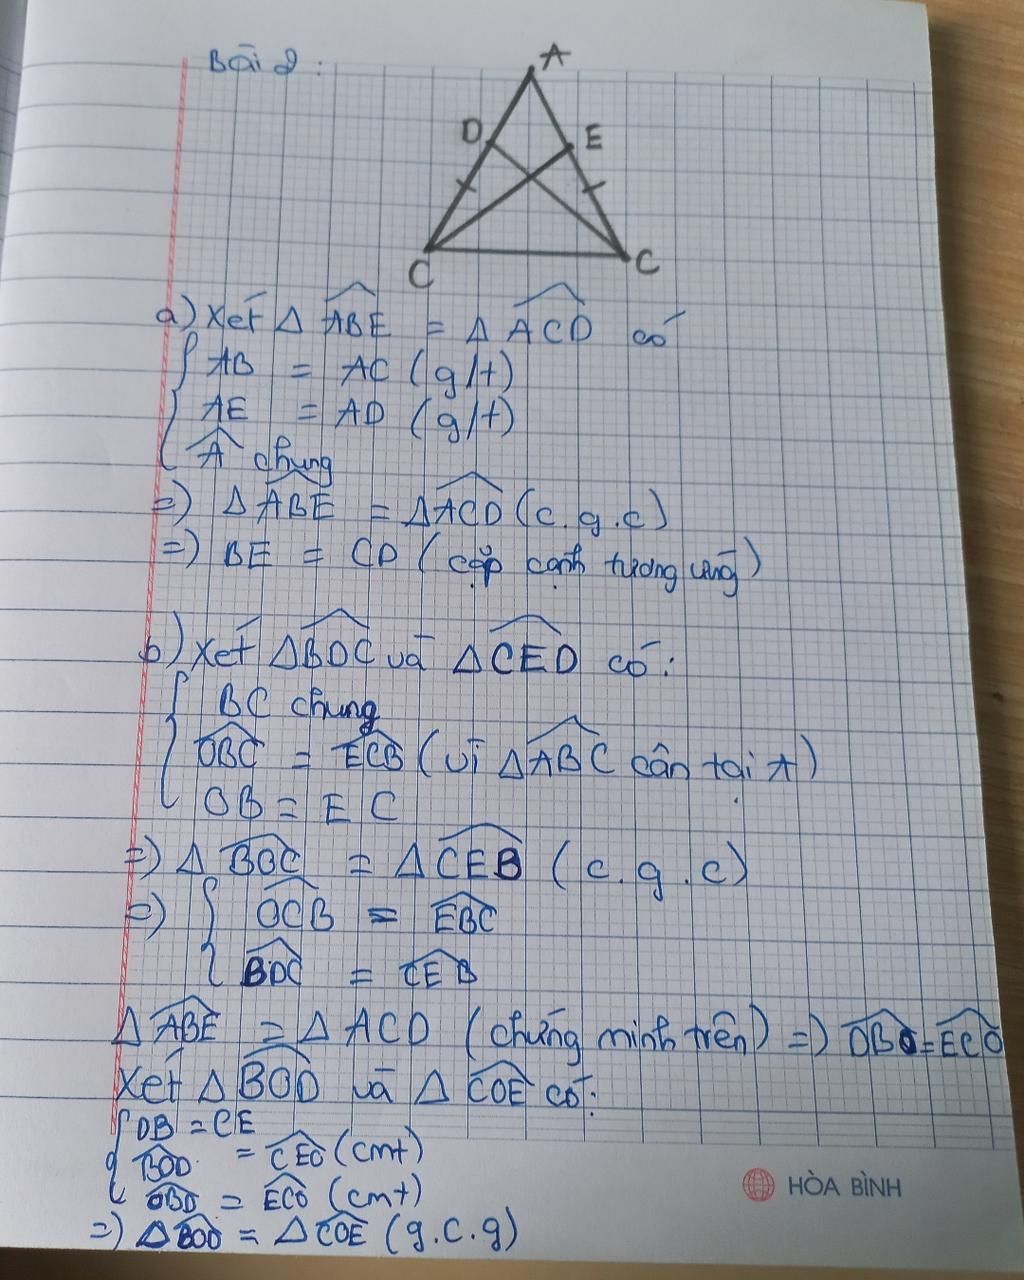 Bài 2:
A
D E
C C
a) Xét Δ ABE = Δ ACD có
AB = AC (g/t)
AE = AD (g/t)
A chung
=) Δ ABE = Δ ACD (c.g.c)
=) BE = CD (cặp cạnh tương ứng)
b) Xét Δ BDC và Δ CED có:
BC chung
OBC = ECB (vì Δ ABC cân tại A)
OB = EC
=) Δ BOC = Δ CEB (c.g.c)
=) OCB = EBC
BDC = CEB
Δ ABE = Δ ACD (chứng minh trên) =) OBO = ECO
Xét Δ BOD và Δ COE có:
DB = CE
BOD = CEO (cmt)
OBD = ECO (cmt)
=) Δ BOD = Δ COE (g.c.g)
HÒA BÌNH